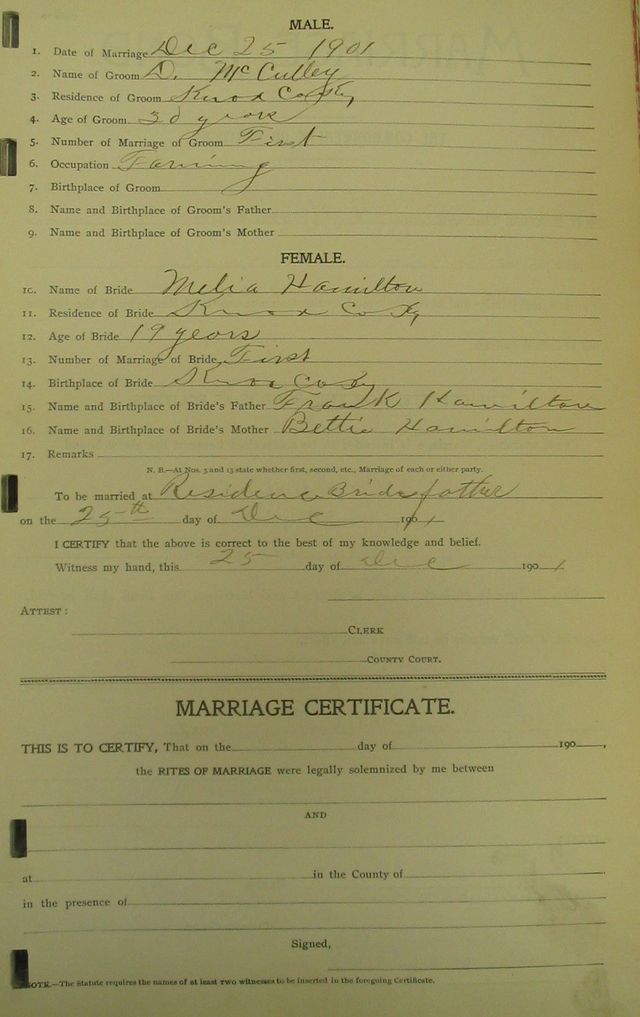 MALE.
1. Date of Marriage Dec 25 1901
2. Name of Groom D. McCulley
3. Residence of Groom Knox Co Ky
4. Age of Groom 30 years
5. Number of Marriage of Groom First
6. Occupation Farming
7. Birthplace of Groom
8. Name and Birthplace of Groom's Father
9. Name and Birthplace of Groom's Mother
FEMALE.
10. Name of Bride Melia Hamilton
11. Residence of Bride Knox Co Ky
12. Age of Bride 19 years
13. Number of Marriage of Bride First
14. Birthplace of Bride Knox Co Ky
15. Name and Birthplace of Bride's Father Frank Hamilton
16. Name and Birthplace of Bride's Mother Bettie Hamilton
17. Remarks
N. B.—At Nos. 5 and 13 state whether first, second, etc., Marriage of each or either party.
To be married at Residence Brides father
on the 25th day of Dec 1901
I CERTIFY that the above is correct to the best of my knowledge and belief.
Witness my hand, this 25 day of Dec 1901
ATTEST:
CLERK
COUNTY COURT.
MARRIAGE CERTIFICATE.
THIS IS TO CERTIFY, That on the day of 190 ,
the RITES OF MARRIAGE were legally solemnized by me between
AND
at in the County of
in the presence of
Signed,
NOTE.—The Statute requires the names of at least two witnesses to be inserted in the foregoing Certificate.